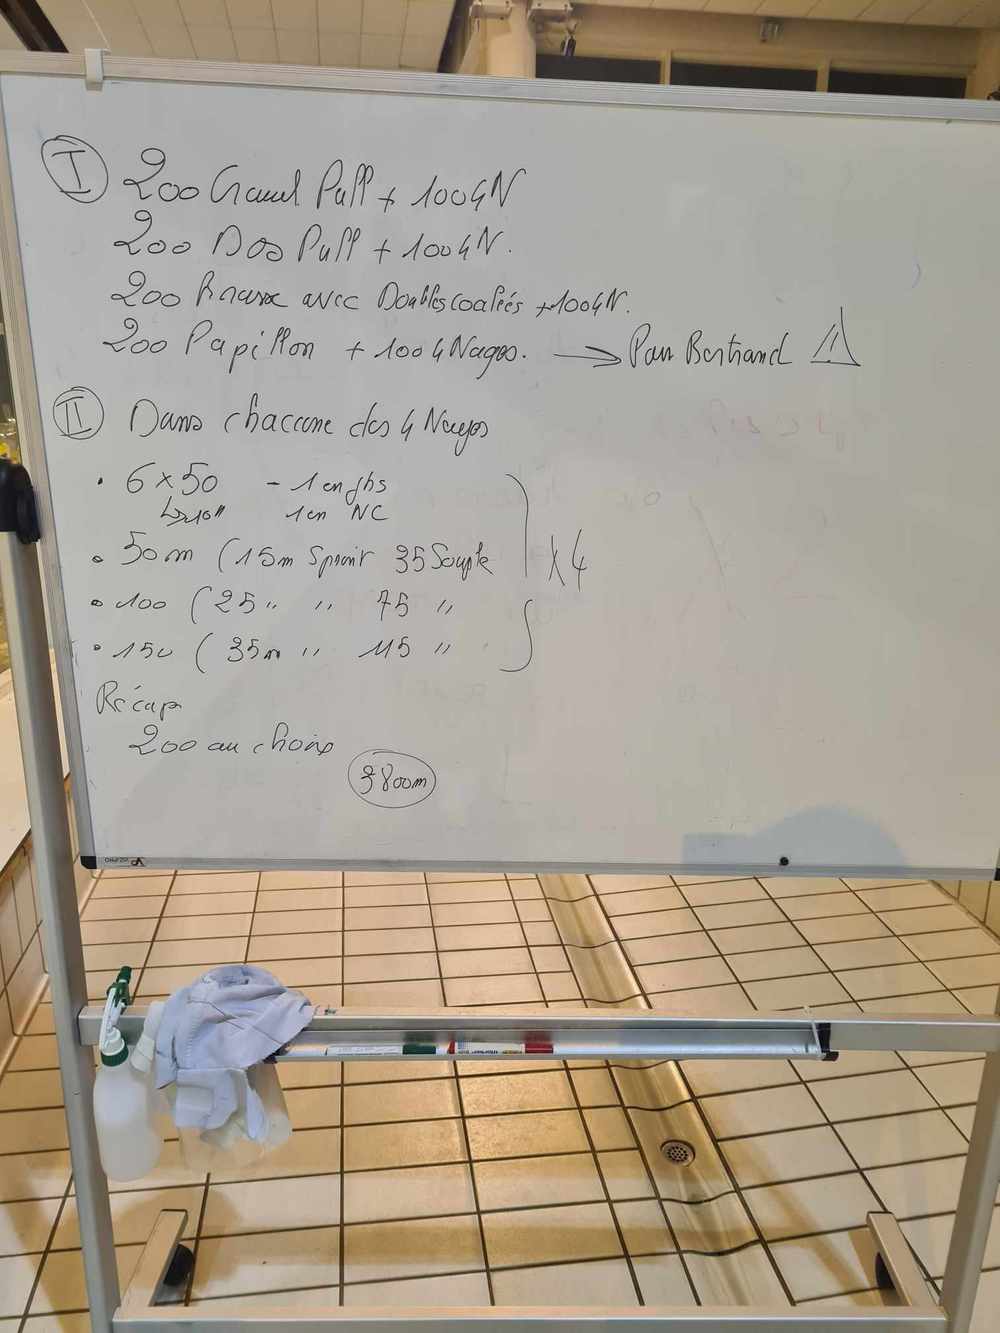 I 200 Crawl Pull + 100 4N
200 Dos Pull + 100 4N.
200 Brasse avec Doubles coulées + 100 4N.
200 Papillon + 100 4 Nages. → Par Bertrand
II Dans chacune des 4 Nages
• 6 x 50 - 1 en
↳ 10" 1 en NC
• 50m (15m Sprint 35 Souple
• 100 (25 " " 75 "
• 150 (35m " 115 "
x 4
Récup
200 au choix
3800m